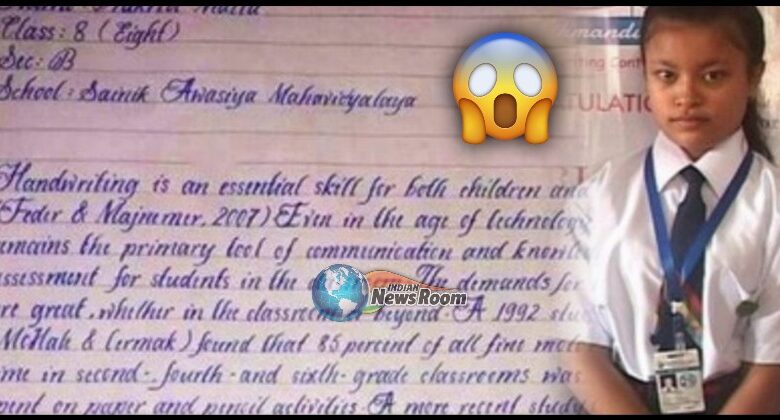 Class : 8 (Eight)
Sec : B
School : Sainik Awasiya Mahavidyalaya
Handwriting is an essential skill for both children and
(Feder & Majnemer, 2007) Even in the age of technology
remains the primary tool of communication and
assessment for students in the The demands for
are great, whether in the classroom or beyond. A 1992
McHale & Cermak) found that 85 percent of all fine
time in second-, fourth- and sixth-grade classrooms was
spent on paper and pencil activities. A more recent
INDIAN
NewsRoom